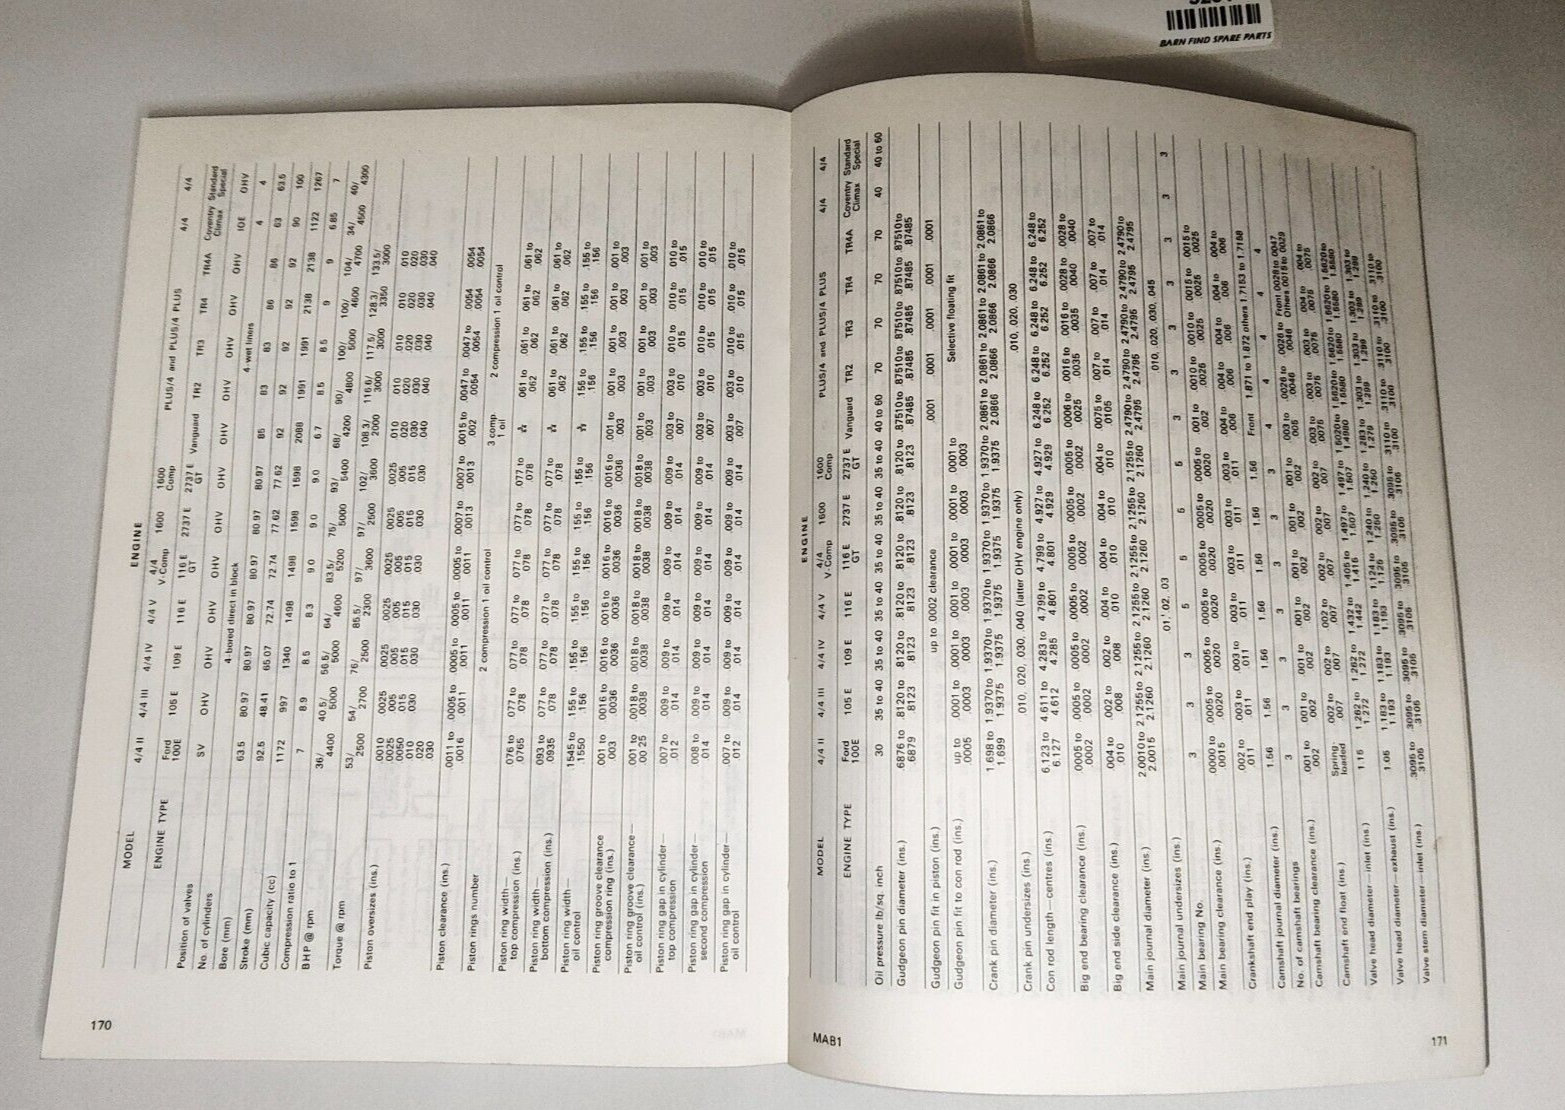 BARN FIND SPARE PARTS
170
ENGINE
MODEL 4/4 II 4/4 III 4/4 IV 4/4 V 4/4 V-Comp 1600 1600 Comp PLUS/4 and PLUS/4 PLUS 4/4 4/4
ENGINE TYPE Ford 100E 105 E 109 E 116 E 116 E GT 2737 E 2737 E GT Vanguard TR2 TR3 TR4 TR4A Coventry Climax Standard Special
Position of valves SV OHV OHV OHV OHV OHV OHV OHV OHV OHV OHV OHV IOE OHV
No. of cylinders 4-bored direct in block 4-wet liners 4 4
Bore (mm) 63.5 80.97 80.97 80.97 80.97 80.97 80.97 85 83 83 86 86 63 63.5
Stroke (mm) 92.5 48.41 65.07 72.74 72.74 77.62 77.62 92 92 92 92 92 90 100
Cubic capacity (cc) 1172 997 1340 1498 1498 1598 1598 2088 1991 1991 2138 2138 1122 1267
Compression ratio to 1 7 8.9 8.5 8.3 9.0 9.0 9.0 6.7 8.5 8.5 9 9 6.85 7
BHP @ rpm 36/ 4400 40.5/ 5000 56.5/ 5000 64/ 4600 83.5/ 5200 75/ 5000 93/ 5400 68/ 4200 90/ 4800 100/ 5000 100/ 4600 104/ 4700 34/ 4500 40/ 4300
Torque @ rpm 53/ 2500 54/ 2700 76/ 2500 85.5/ 2300 97/ 3600 97/ 2500 102/ 3600 108.3/ 2000 116.6/ 3000 117.5/ 3000 128.3/ 3350 133.5/ 3000
Piston oversizes (ins.) .0010 .0025 .0050 .010 .020 .030 .0025 .005 .015 .030 .0025 .005 .015 .030 .0025 .005 .015 .030 .0025 .005 .015 .030 .0025 .005 .015 .030 .0025 .005 .015 .030 .010 .020 .030 .040 .010 .020 .030 .040 .010 .020 .030 .040 .010 .020 .030 .040 .010 .020 .030 .040
Piston clearance (ins.) .0011 to .0016 .0005 to .0011 .0005 to .0011 .0005 to .0011 .0005 to .0011 .0007 to .0013 .0007 to .0013 .0015 to .002 .0047 to .0054 .0047 to .0054 .0054 .0054 .0054 .0054
Piston rings number 2 compression 1 oil control 3 comp 1 oil 2 compression 1 oil control
Piston ring width— top compression (ins.) .076 to .0765 .077 to .078 .077 to .078 .077 to .078 .077 to .078 .077 to .078 .077 to .078 .061 to .062 .061 to .062 .061 to .062 .061 to .062
Piston ring width— bottom compression (ins.) .093 to .0935 .077 to .078 .077 to .078 .077 to .078 .077 to .078 .077 to .078 .077 to .078 .061 to .062 .061 to .062 .061 to .062 .061 to .062
Piston ring width— oil control .1545 to .1550 .155 to .156 .155 to .156 .155 to .156 .155 to .156 .155 to .156 .155 to .156 .155 to .156 .155 to .156 .155 to .156 .155 to .156
Piston ring groove clearance compression ring (ins.) .001 to .003 .0016 to .0036 .0016 to .0036 .0016 to .0036 .0016 to .0036 .0016 to .0036 .0016 to .0036 .001 to .003 .001 to .003 .001 to .003 .001 to .003 .001 to .003
Piston ring groove clearance— oil control (ins.) .001 to .0025 .0018 to .0038 .0018 to .0038 .0018 to .0038 .0018 to .0038 .0018 to .0038 .0018 to .0038 .001 to .003 .001 to .003 .001 to .003 .001 to .003 .001 to .003
Piston ring gap in cylinder— top compression .007 to .012 .009 to .014 .009 to .014 .009 to .014 .009 to .014 .009 to .014 .009 to .014 .003 to .007 .003 to .010 .010 to .015 .010 to .015 .010 to .015
Piston ring gap in cylinder— second compression .008 to .014 .009 to .014 .009 to .014 .009 to .014 .009 to .014 .009 to .014 .009 to .014 .003 to .007 .003 to .010 .010 to .015 .010 to .015 .010 to .015
Piston ring gap in cylinder— oil control .007 to .012 .009 to .014 .009 to .014 .009 to .014 .009 to .014 .009 to .014 .009 to .014 .003 to .007 .003 to .010 .010 to .015 .010 to .015 .010 to .015
MAB1
171
ENGINE
MODEL 4/4 II 4/4 III 4/4 IV 4/4 V 4/4 V-Comp 1600 1600 Comp PLUS/4 and PLUS/4 PLUS 4/4 4/4
ENGINE TYPE Ford 100E 105 E 109 E 116 E 116 E GT 2737 E 2737 E GT Vanguard TR2 TR3 TR4 TR4A Coventry Climax Standard Special
Oil pressure lb/sq. inch 30 35 to 40 35 to 40 35 to 40 35 to 40 35 to 40 35 to 40 40 to 60 70 70 70 70 40 40 to 60
Gudgeon pin diameter (ins.) .6876 to .6879 .8120 to .8123 .8120 to .8123 .8120 to .8123 .8120 to .8123 .8120 to .8123 .8120 to .8123 .87510 to .87485 .87510 to .87485 .87510 to .87485 .87510 to .87485 .87510 to .87485
Gudgeon pin fit in piston (ins.) up to .0002 clearance .0001 .0001 .0001 .0001 .0001
Gudgeon pin fit to con rod (ins.) up to .0005 .0001 to .0003 .0001 to .0003 .0001 to .0003 .0001 to .0003 .0001 to .0003 .0001 to .0003 Selective floating fit
Crank pin diameter (ins.) 1.698 to 1.699 1.9370 to 1.9375 1.9370 to 1.9375 1.9370 to 1.9375 1.9370 to 1.9375 1.9370 to 1.9375 1.9370 to 1.9375 2.0861 to 2.0866 2.0861 to 2.0866 2.0861 to 2.0866 2.0861 to 2.0866 2.0861 to 2.0866
Crank pin undersizes (ins.) .010, .020, .030, .040 (latter OHV engine only) .010, .020, .030
Con rod length—centres (ins.) 6.123 to 6.127 4.611 to 4.612 4.283 to 4.285 4.799 to 4.801 4.799 to 4.801 4.927 to 4.929 4.927 to 4.929 6.248 to 6.252 6.248 to 6.252 6.248 to 6.252 6.248 to 6.252 6.248 to 6.252
Big end bearing clearance (ins.) .0005 to .0002 .0005 to .0002 .0005 to .0002 .0005 to .0002 .0005 to .0002 .0005 to .0002 .0005 to .0002 .0006 to .0025 .0016 to .0035 .0016 to .0035 .0028 to .0040 .0028 to .0040
Big end side clearance (ins.) .004 to .010 .002 to .008 .002 to .008 .004 to .010 .004 to .010 .004 to .010 .004 to .010 .0075 to .0105 .007 to .014 .007 to .014 .007 to .014 .007 to .014
Main journal diameter (ins.) 2.0010 to 2.0015 2.1255 to 2.1260 2.1255 to 2.1260 2.1255 to 2.1260 2.1255 to 2.1260 2.1255 to 2.1260 2.1255 to 2.1260 2.4790 to 2.4795 2.4790 to 2.4795 2.4790 to 2.4795 2.4790 to 2.4795 2.4790 to 2.4795
Main journal undersizes (ins.) .01, .02, .03 .010, .020, .030, .045
Main bearing No. 3 3 3 5 5 5 5 3 3 3 3 3 3 3
Main bearing clearance (ins.) .0000 to .0015 .0005 to .0020 .0005 to .0020 .0005 to .0020 .0005 to .0020 .0005 to .0020 .0005 to .0020 .001 to .002 .0010 to .0025 .0010 to .0025 .0015 to .0025 .0015 to .0025
Crankshaft end play (ins.) .002 to .011 .003 to .011 .003 to .011 .003 to .011 .003 to .011 .003 to .011 .003 to .011 .004 to .006 .004 to .006 .004 to .006 .004 to .006 .004 to .006
Camshaft journal diameter (ins.) 1.56 1.56 1.56 1.56 1.56 1.56 1.56 Front 1.871 to 1.872 others 1.7153 to 1.7158
No. of camshaft bearings 3 3 3 3 3 3 3 4 4 4 4 4
Camshaft bearing clearance (ins.) .001 to .002 .001 to .002 .001 to .002 .001 to .002 .001 to .002 .001 to .002 .001 to .002 .003 to .005 .0026 to .0046 .0026 to .0046 Front .0026 to .0047 Others
Camshaft end float (ins.) Spring-loaded .002 to .007 .002 to .007 .002 to .007 .002 to .007 .002 to .007 .002 to .007
Valve head diameter—inlet (ins.) 1.15 1.262 to 1.272 1.262 to 1.272 1.432 to 1.442 1.405 to 1.415 1.497 to 1.507 1.497 to 1.507
Valve head diameter—exhaust (ins.) 1.05 1.183 to 1.193 1.183 to 1.193 1.183 to 1.193 1.240 to 1.250 1.240 to 1.250
Valve stem diameter—inlet (ins.) .3095 to .3105 .3095 to .3105 .3095 to .3105 .3095 to .3105 .3095 to .3105 .3095 to .3105 .3095 to .3105